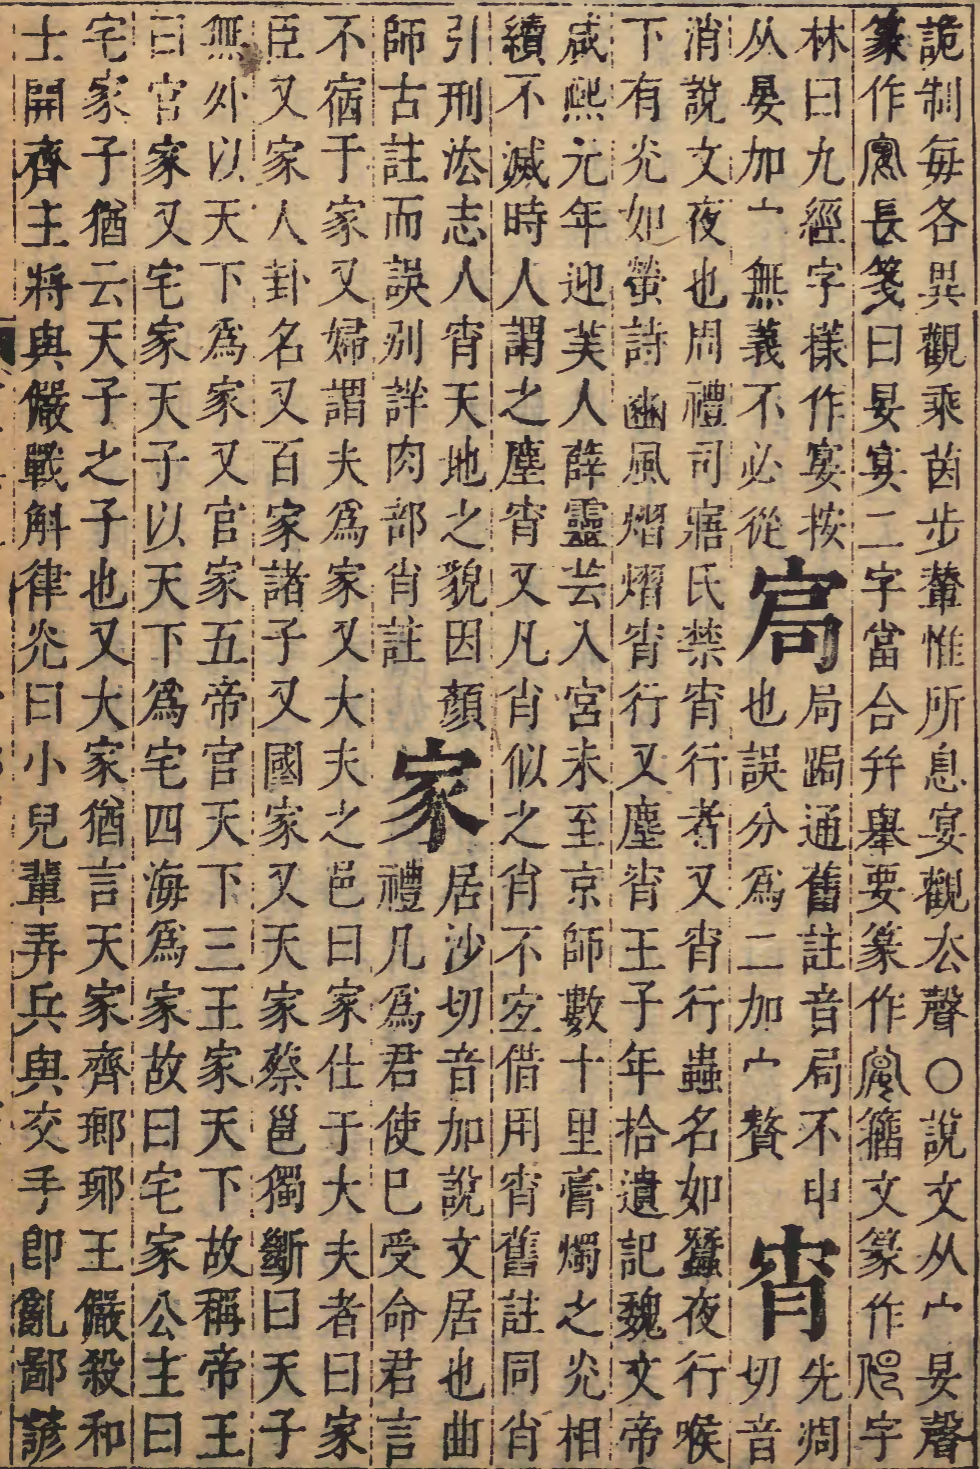 詭制每各異觀乘茵步輦惟所息宴觀厺聲○說文从宀妟聲
篆作長箋曰妟宴二字當合幷舉要篆作籀文篆作字
林曰九經字樣作宴按
从晏加宀無義不必從
局跼通舊註音局不申
也誤分爲二加宀贅
宵
先凋
切音
消說文夜也周禮司寤氏禁宵行者又宵行蟲名如蠶夜行喉
下有光如螢詩豳風熠熠宵行又塵宵王子年拾遺記魏文帝
咸熙元年迎美人薛靈芸入宮未至京師數十里膏燭之光相
續不滅時人謂之塵宵又凡肖似之肖不定借用宵舊註同肖
引刑法志人宵天地之貌因顏
師古註而誤別詳肉部肖註
家
居沙切音加說文居也曲
禮凡爲君使已受命君言
不宿于家又婦謂夫爲家又大夫之邑曰家仕于大夫者曰家
臣又家人卦名又百家諸子又國家又天家蔡邕獨斷曰天子
無外以天下爲家又官家五帝官天下三王家天下故稱帝王
曰官家又宅家天子以天下爲宅四海爲家故曰宅家公主曰
宅家子猶云天子之子也又大家猶言天家齊瑯琊王儼殺和
士開齊主將與儼戰斛律光曰小兒輩弄兵與交手卽亂鄙諺